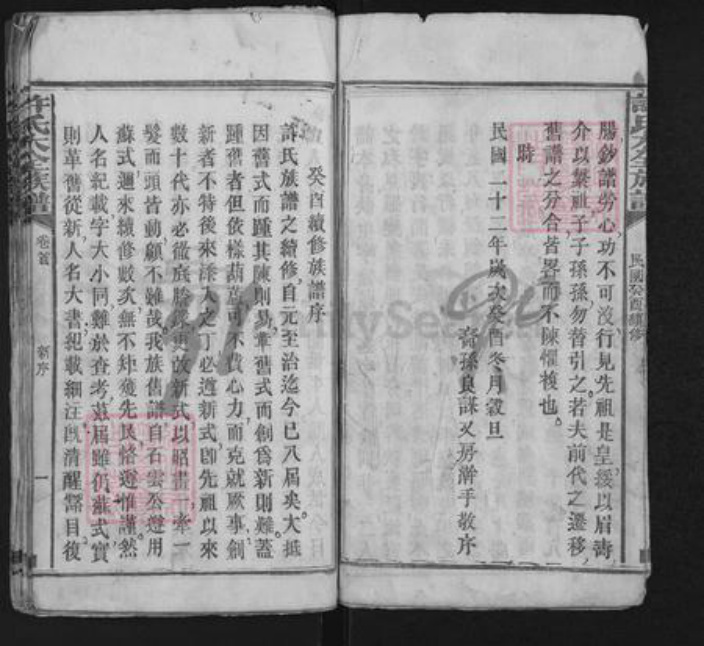 腸鈔譜勞心功不可沒行見先祖是皇綏以眉壽
介以繁祉子子孫孫勿替引之若夫前代之遷移
舊譜之分合皆畧而不陳懼複也。
時
民國二十二年歲次癸酉冬月穀旦
裔孫良謀又房瀞手敬序
許氏大全族譜
民國癸酉續修
癸酉續修族譜序
許氏族譜之續修自元至治迄今已八届矣大抵
因舊式而踵其陳則易革舊式而創爲新則難蓋
踵舊者但依樣葫蘆可不費心力而克就厥事創
新者不特後來添入之丁必遵新式卽先祖以來
數十代亦必徹底謄錄更改新式以昭畫一牽一
髮而頭皆動顧不難哉我族舊譜自石雲公遵用
蘇式週來續修數次無不矩矱先民恪遵惟謹然
人名紀載字大小同難於查考茲届雖仍蘇式實
則革舊從新人名大書紀載細注旣清醒豁目復
許氏大全族譜
卷首
新序
一